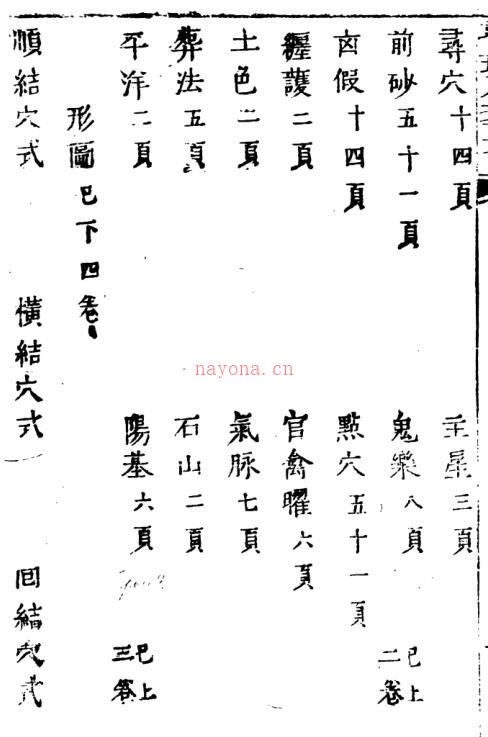 尋穴十四頁 主星三頁
前砂五十一頁 鬼樂八頁 已上二卷
真假十四頁 點穴五十一頁
纏護二頁 官禽曜六頁
土色二頁 氣脉七頁
葬法五頁 石山二頁
平洋二頁 陽基六頁 已上三卷
形圖已下四卷
順結穴式 橫結穴式 回結穴式
nayona.cn